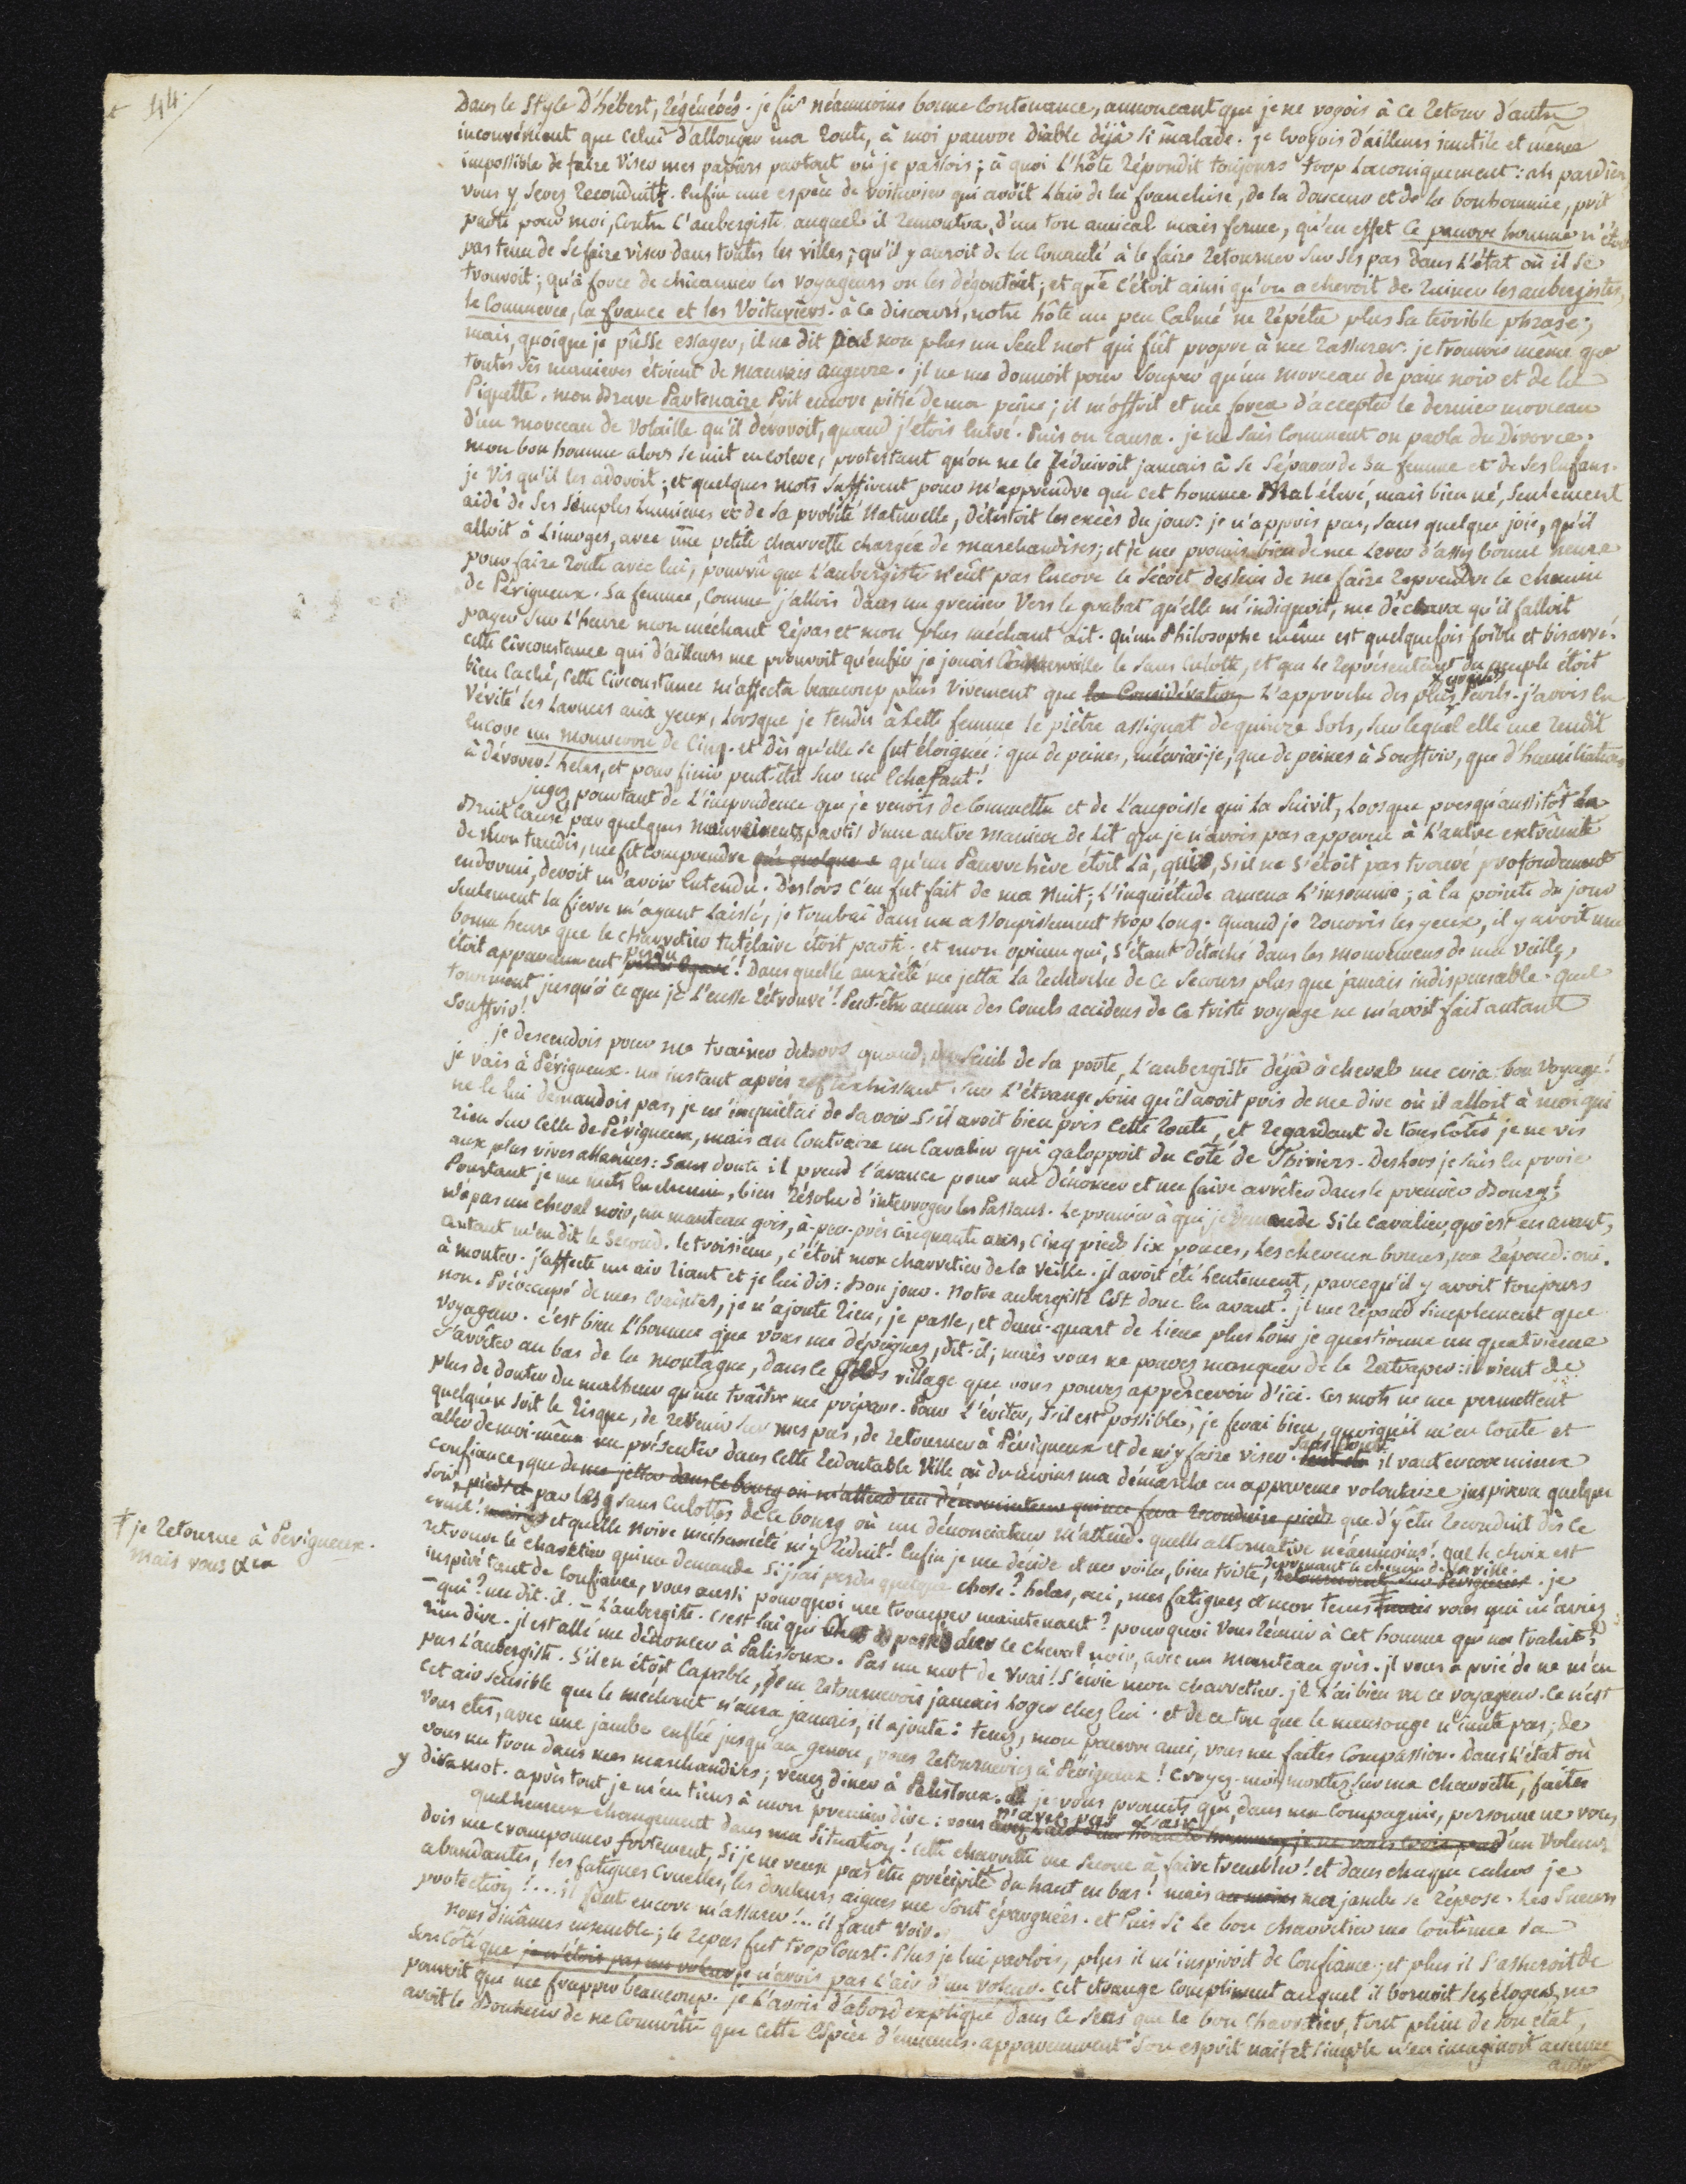 44.
Dans le Style D'hébert, Régénérés. je fis néanmoins bonne contenance, annonçant que je ne voyois à ce retour d'autre
inconvénient que celui d'allonger ma route, à moi pauvre diable déjà si malade. je croyois d'ailleurs inutile et même
impossible de faire viser mes papiers partout où je passois; à quoi l'hôte répondit toujours trop laconiquement: ah pardieu
vous y serez reconduit. enfin une espèce de voiturier qui avoit l'air de la franchise, de la douceur et de la bonhommie, prit
parti pour moi, contre l'aubergiste auquel il remontra, d'un ton amical mais ferme, qu'en effet ce pauvre homme n'étoit
pas tenu de se faire viser dans toutes les villes; qu'il y auroit de la cruauté à le faire retourner sur ses pas dans l'état où il se
trouvoit; qu'à force de chicanner les voyageurs on les dégoutoit; et que c'étoit ainsi qu'on achevoit de ruiner les aubergistes,
le Commerce, la france et les Voituriers. à ce discours, notre hôte un peu calmé ne répéta plus sa terrible phrase;
mais, quoique je pûsse essayer, il ne dit pas non plus un seul mot qui fût propre à me rassurer. je trouvois même que
toutes ses manieres étoient de mauvais augure. il ne me donnoit pour souper qu'un morceau de pain noir et de la
Piquette. mon Brave Partenaire Prit encore pitié de ma peine; il m'offrit et me força d'accepter le dernier morceau
d'un morceau de volaille qu'il dévoroit, quand j'étois entré. Puis on causa. je ne sais comment on parla du Divorce.
mon bon homme alors se mit en colere, protestant qu'on ne le réduiroit jamais à se séparer de sa femme et de ses enfans.
je vis qu'il les adoroit; et quelques mots suffirent pour m'apprendre que cet homme Mal élevé, mais bien né, seulement
aidé de ses simples lumieres et de sa probité naturelle, détestoit les excès du jour. je n'appris pas, sans quelque joie, qu'il
alloit à Limoges, avec une petite charrette chargée de marchandises; et je me promis bien de me lever d'assez bonne heure
pour faire route avec lui, pourvû que l'aubergiste n'eût pas encore le secret dessein de me faire reprendre le chemin
de Périgueux. Sa femme, comme j'allois dans un grenier vers le grabat qu'elle m'indiquoit, me déclara qu'il falloit
payer sur l'heure mon méchant répas et mon plus méchant lit. qu'un Philosophe même est quelquefois foible et bisarre.
cette circonstance qui d'ailleurs me prouvoit qu'enfin je jouois à merveille le sans culotte, et que le représentant du peuple étoit
bien caché, cette circonstance m'affecta beaucoup plus vivement que la Considération l'approche des plus grands périls. j'avois en
vérité les larmes aux yeux, lorsque je tendis à cette femme le piètre assignat de quinze sols, sur lequel elle me rendit
encore un monneron de cinq. et dès qu'elle se fut éloignée: que de peines, m'écriai-je, que de peines à souffrir, que d'humiliations
à dévorer! hélas, et pour finir peut-être sur un échafaut!
jugez pourtant de l'imprudence que je venois de commettre et de l'angoisse qui la suivit, lorsque presqu'aussitôt un
Bruit causé par quelques mouvements partis d'une autre maniere de lit que je n'avois pas apperçu à l'autre extrêmité
de mon taudis, me fit comprendre que quelque qu'un Pauvre hère étoit là, qui, s'il ne s'étoit pas trouvé profondément
endormi, devoit m'avoir entendu. Dèslors c'en fut fait de ma nuit; l'inquiétude amena l'insomnie; à la pointe du jour
seulement la fievre m'ayant laissé, je tombai dans un assoupissement trop long. quand je rouvris les yeux, il y avoit une
bonne heure que le charretier tutélaire étoit parti. et mon opium qui, s'étant détaché dans les mouvemens de ma veille,
étoit apparemment perdu! Dans quelle anxiété me jetta la recherche de ce secours plus que jamais indispensable. quel
tourment jusqu'à ce que je l'eusse retrouvé! Peut-être aucun des cruels accidens de ce triste voyage ne m'avoit fait autant
souffrir!
je descendois pour me trainer dehors quand, du seuil de sa porte, l'aubergiste déjà à cheval me cria: bon voyage!
je vais à Périgueux. un instant après réfléchissant sur l'étrange soin qu'il avoit pris de me dire où il alloit à moi qui
ne le lui demandois pas, je m'inquiétai de savoir s'il avoit bien pris cette route, et regardant de tous côtés je ne vis
rien sur celle de Périgueux, mais au contraire un cavalier qui galoppoit du côté de Thiviers. Deslors je suis la proie
aux plus vives allarmes: sans doute il prend l'avance pour me dénoncer et me faire arrêter dans le premier Bourg!
Pourtant je me mets en chemin, bien résolu d'interroger les Passans. le premier à qui je demande si le cavalier qui est en avant,
n'a pas un cheval noir, un manteau gris, à-peu-près cinquante ans, cinq pieds six pouces, les cheveux bruns, me répond: oui.
autant m'en dit le second. le troisième, c'étoit mon charretier de la veille. il avoit été lentement, parcequ'il y avoit toujours
à monter. j'affecte un air riant et je lui dis: Bon jour. notre aubergiste est donc en avant? il me répond simplement que
non. Préoccupé de mes craintes, je n'ajoute rien, je passe, et demi-quart de lieue plus loin je questionne un quatrième
voyageur. c'est bien l'homme que vous me dépeignez, dit-il; mais vous ne pouvez manquer de le rattraper: il vient de
s'arrêter au bas de la montagne, dans le gros village que vous pouvez appercevoir d'ici. Ces mots ne me permettent
plus de douter du malheur qu'un traître me prépare. Pour l'éviter, s'il est possible, je ferai bien, quoiqu'il m'en coute et
quelque soit le risque, de revenir sur mes pas, de retourner à Périgueux et de m'y faire viser. sans doute il vaut encore mieux
aller de moi-même me présenter dans cette redoutable ville où du moins ma démarche en apparence volontaire inspirera quelque
confiance, que de me jetter dans ce bourg où m'attend un dénonciateur qui me fera reconduire pieds que d'y être reconduit dès ce
soir par les sans culottes de ce bourg où un dénonciateur m'attend. quelle alternative néanmoins! que le choix est
cruel! et quelle noire mechanceté m'y réduit! Enfin je me décide et me voilà, bien triste, reprenant le chemin de la ville. je
retrouve le charretier qui me demande si j'ai perdu quelque chose? hélas, oui, mes fatigues et mon tems ‡ mais vous qui m'aviez
inspiré tant de confiance, vous aussi pourquoi me tromper maintenant? pourquoi vous réunir à cet homme qui me trahit?
- qui? me dit-il. - L'aubergiste. c'est lui qui est passé sur le cheval noir, avec un manteau gris. il vous a prié de ne m'en
rien dire. il est allé me dénoncer à Palissoux. Pas un mot de vrai! s'écrie mon charretier. je l'ai bien vu ce voyageur. ce n'est
pas l'aubergiste. S'il en étoit capable, je ne retournerois jamais loger chez lui. et de ce ton que le mensonge n'imite pas; de
cet air sensible que le méchant n'aura jamais, il ajoute: tenez, mon pauvre ami, vous me faites compassion. Dans l'état où
vous êtes, avec une jambe enflée jusqu'au genou, vous retourneriez à Périgueux! croyez-moi, montez sur ma charrette, faites
vous un trou dans mes marchandises; venez diner à Palissoux. et je vous promets que, dans ma compagnie, personne ne vous
y dira mot. après tout je m'en tiens à mon premier dire: vous n'avez pas l'air d'un voleur.
quel heureux changement dans ma situation! cette charrette me secoue à faire trembler! et dans chaque cahos je
dois me cramponner fortement, si je ne veux pas être précipité du haut en bas! mais au moins ma jambe se répose. les sueurs
abondantes, les fatigues cruelles, les douleurs aigues me sont épargnées. et puis si le bon charretier me continue sa
protection!... il peut encore m'assurer!... il faut voir.
nous dinâmes ensemble; le repas fut trop court. Plus je lui parlois, plus il m'inspiroit de confiance; et plus il s'assuroit de
son côté que je n'étois pas un voleur je n'avois pas l'air d'un voleur. cet etrange compliment auquel il bornoit ses éloges, ne
pouvoit que me frapper beaucoup. je l'avois d'abord expliqué dans ce sens que le bon charretier, tout plein de son état,
avoit le Bonheur de ne connoître que cette espèce d'ennemis. apparemment son esprit naif et simple n'en imaginoit aucune
autre
‡ je Retourne à Périgueux.
mais vous